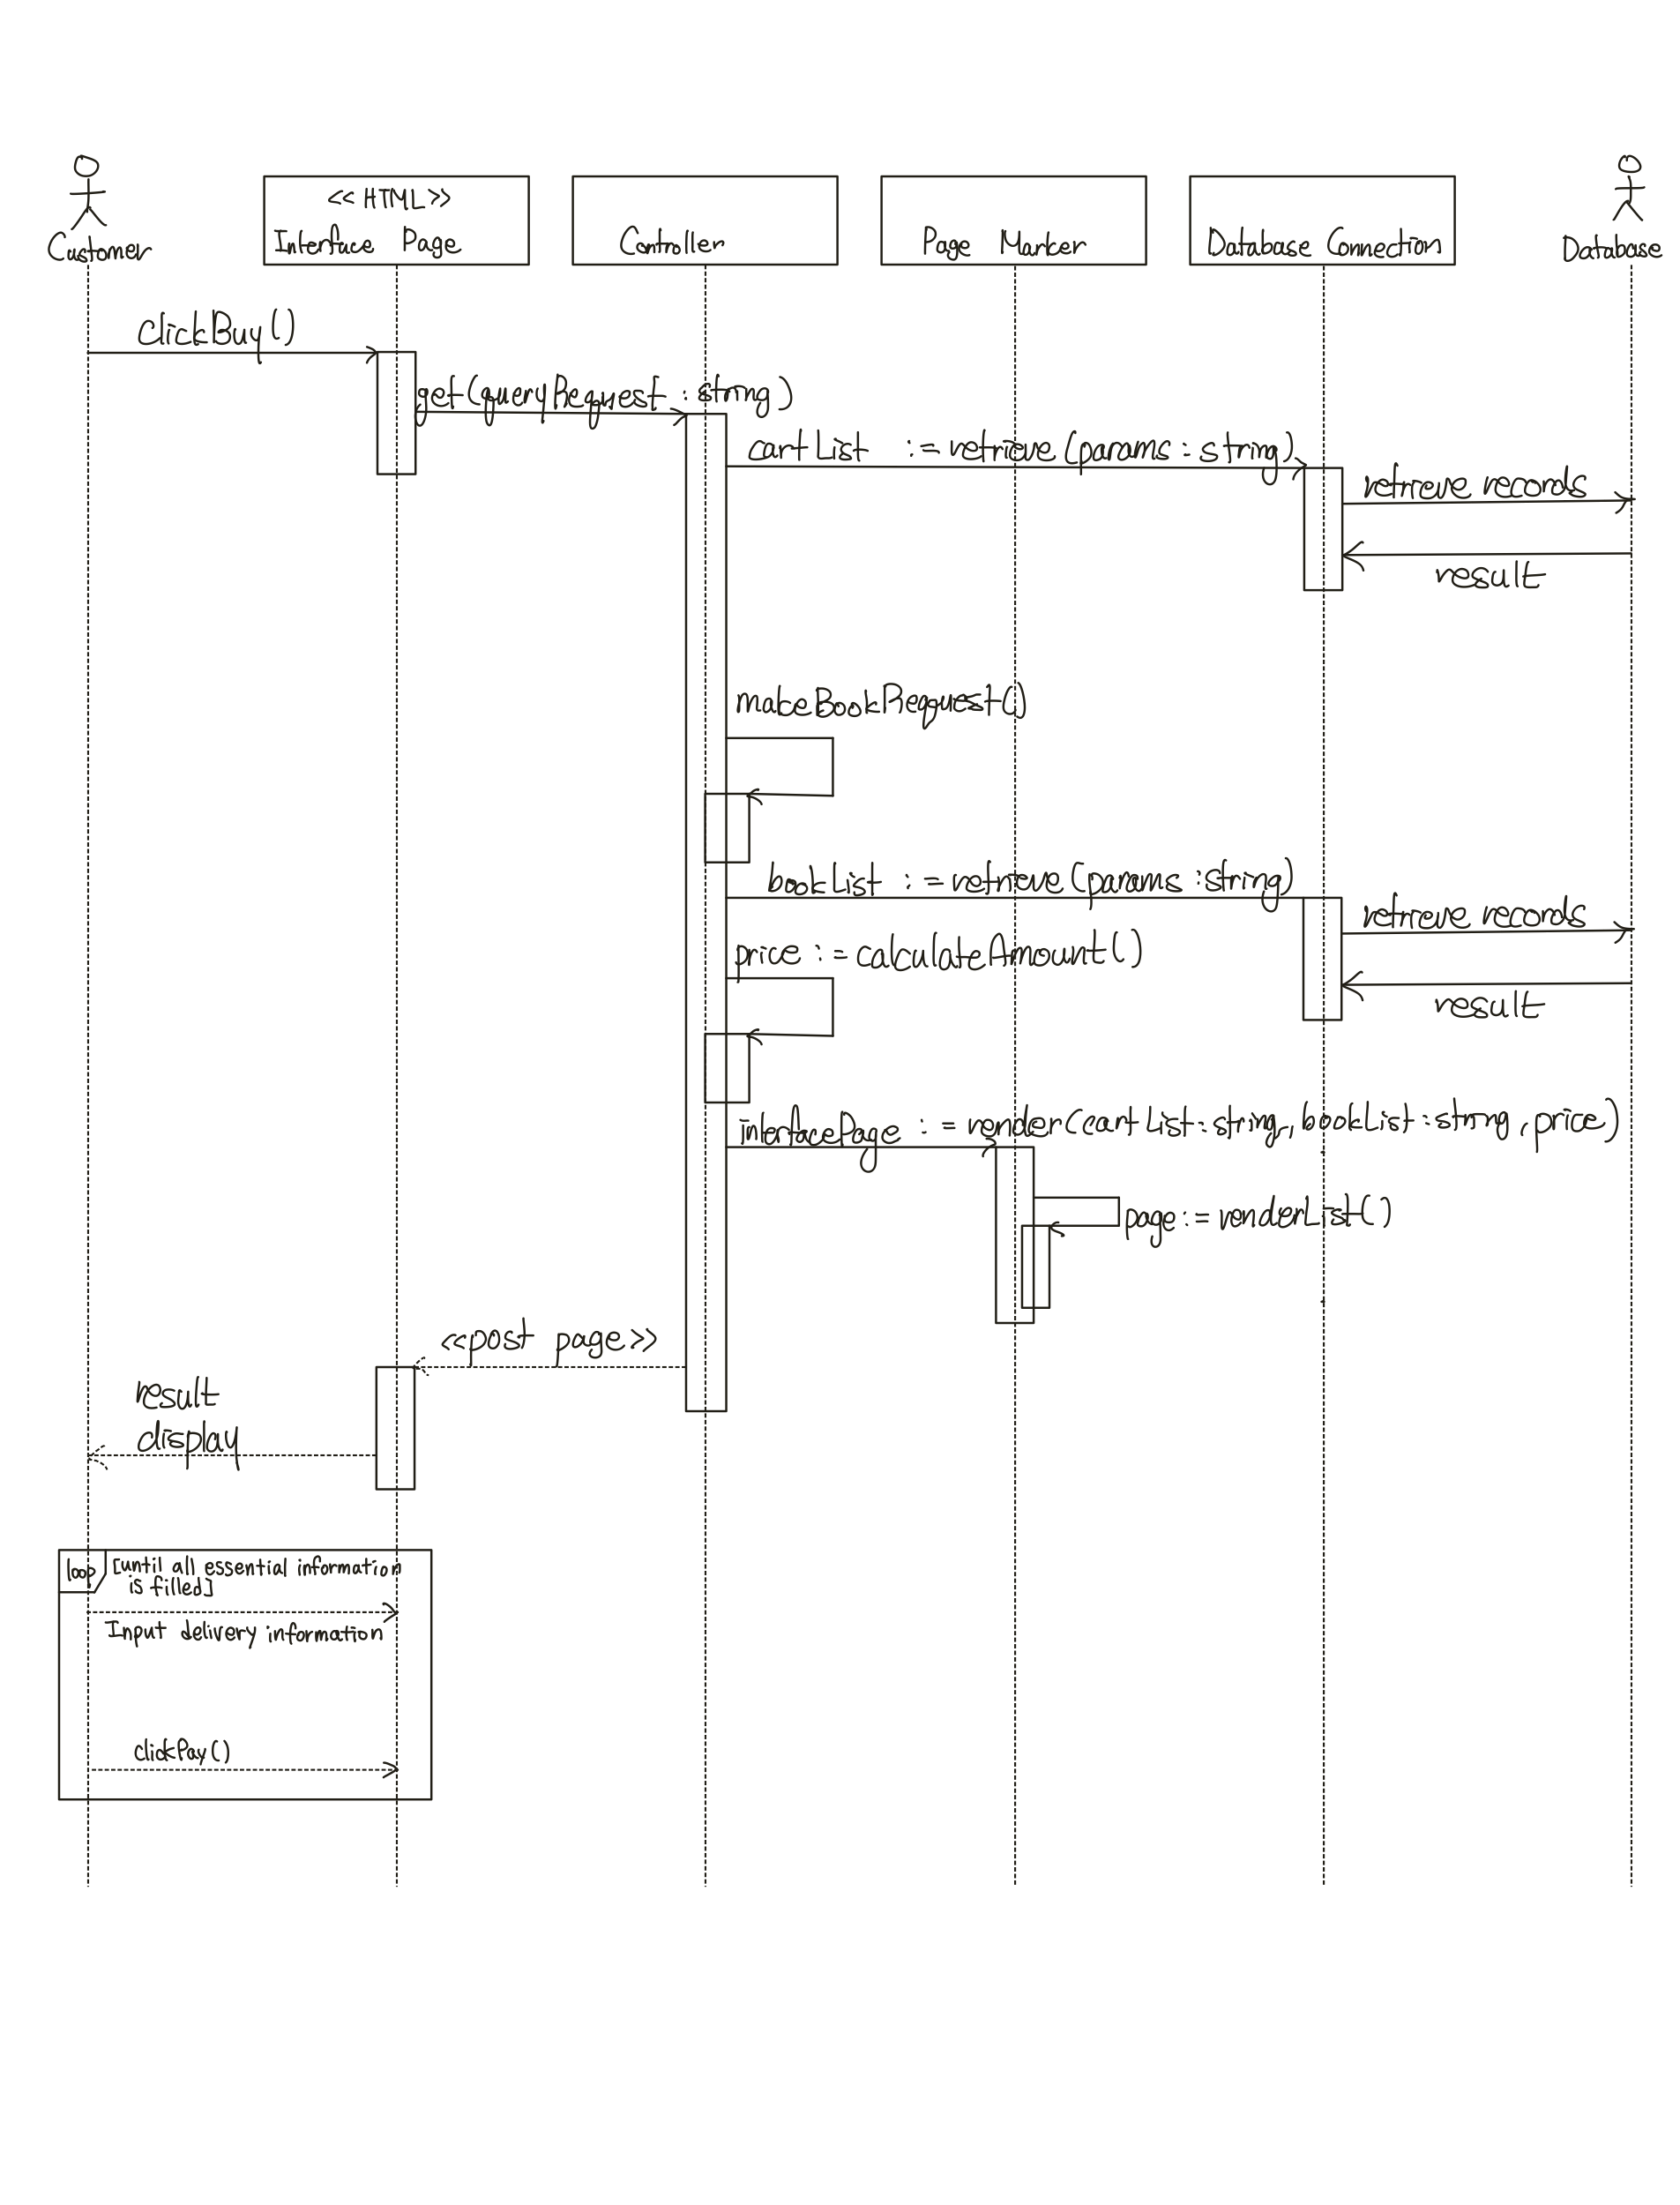 Customer
<< HTML >>
Interface Page
Controller
Page Marker
Database Connection
Database
ClickBuy()
get(queryRequest : string)
cartList := retrieve(params : string)
retrieve records
result
makeBookRequest()
bookList := retrieve(params : string)
retrieve records
price := calculateAmount()
result
interfacePage := render(cartList : string, bookList : string, price)
page := renderList()
<<post page>>
result
display
loop
[until all essential information
is filled]
Input delivery information
clickPay()